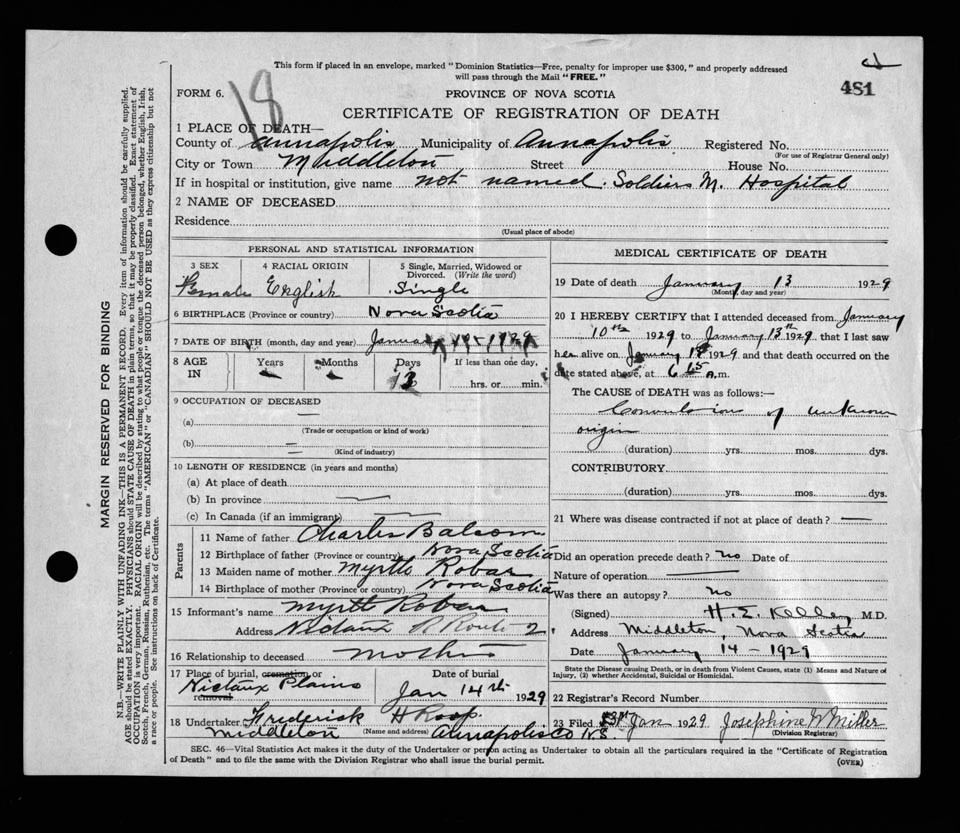 This form if placed in an envelope, marked "Dominion Statistics—Free, penalty for improper use $300," and properly addressed
will pass through the Mail "FREE."
481
FORM 6.
18
PROVINCE OF NOVA SCOTIA
CERTIFICATE OF REGISTRATION OF DEATH
1 PLACE OF DEATH—
County of Annapolis Municipality of Annapolis Registered No.
(For use of Registrar General only)
City or Town Middleton Street House No.
If in hospital or institution, give name not named. Soldiers M. Hospital
2 NAME OF DECEASED
Residence
(Usual place of abode)
PERSONAL AND STATISTICAL INFORMATION
3 SEX 4 RACIAL ORIGIN 5 Single, Married, Widowed or
Divorced. (Write the word)
Female English Single
6 BIRTHPLACE (Province or country) Nova Scotia
7 DATE OF BIRTH (month, day and year) January 1929
8 AGE IN Years Months Days If less than one day,
13 hrs. or min.
9 OCCUPATION OF DECEASED
(a) —
(Trade or occupation or kind of work)
(b) —
(Kind of industry)
10 LENGTH OF RESIDENCE (in years and months)
(a) At place of death
(b) In province —
(c) In Canada (if an immigrant) —
Parents
11 Name of father Charles Balcom
12 Birthplace of father (Province or country) Nova Scotia
13 Maiden name of mother Myrtle Robar
14 Birthplace of mother (Province or country) Nova Scotia
15 Informant's name Myrtle Robar
Address Nictaux R Route 2
16 Relationship to deceased mother
17 Place of burial, cremation or removal Date of burial
Nictaux Plains Jan 14th 1929
18 Undertaker Frederick H Roop
(Name and address)
Middleton Annapolis Co N S
MEDICAL CERTIFICATE OF DEATH
19 Date of death January 13 1929
(Month, day and year)
20 I HEREBY CERTIFY that I attended deceased from January
10th 1929 to January 13th 1929, that I last saw
her alive on January 1929 and that death occurred on the
date stated above, at 6 15 A.m.
The CAUSE of DEATH was as follows:—
Convulsions of unknown
origin
(duration) yrs. mos. dys.
CONTRIBUTORY
(duration) yrs. mos. dys.
21 Where was disease contracted if not at place of death? —
Did an operation precede death? no Date of
Nature of operation —
Was there an autopsy? no
(Signed) H. E. Kelley M.D.
Address Middleton, Nova Scotia
Date January 14 - 1929
State the Disease causing Death, or in death from Violent Causes, state (1) Means and Nature of
Injury, (2) whether Accidental, Suicidal or Homicidal.
22 Registrar's Record Number
23 Filed 31st Jan 1929 Josephine W Miller
(Division Registrar)
SEC. 46—Vital Statistics Act makes it the duty of the Undertaker or person acting as Undertaker to obtain all the particulars required in the "Certificate of Registration
of Death" and to file the same with the Division Registrar who shall issue the burial permit.
(OVER)
MARGIN RESERVED FOR BINDING
N.B.—WRITE PLAINLY WITH UNFADING INK—THIS IS A PERMANENT RECORD. Every item of information should be carefully supplied.
AGE should be stated EXACTLY. PHYSICIANS should STATE CAUSE OF DEATH in plain terms, so that it may be properly classified. Exact statement of
OCCUPATION is very important. RACIAL ORIGIN will be described by stating to what people or tongue the deceased person belonged, whether English, Irish,
Scotch, French, German, Russian, Ruthenian, etc. The terms "AMERICAN" or "CANADIAN" SHOULD NOT BE USED as they express citizenship but not
a race or people. See instructions on back of Certificate.